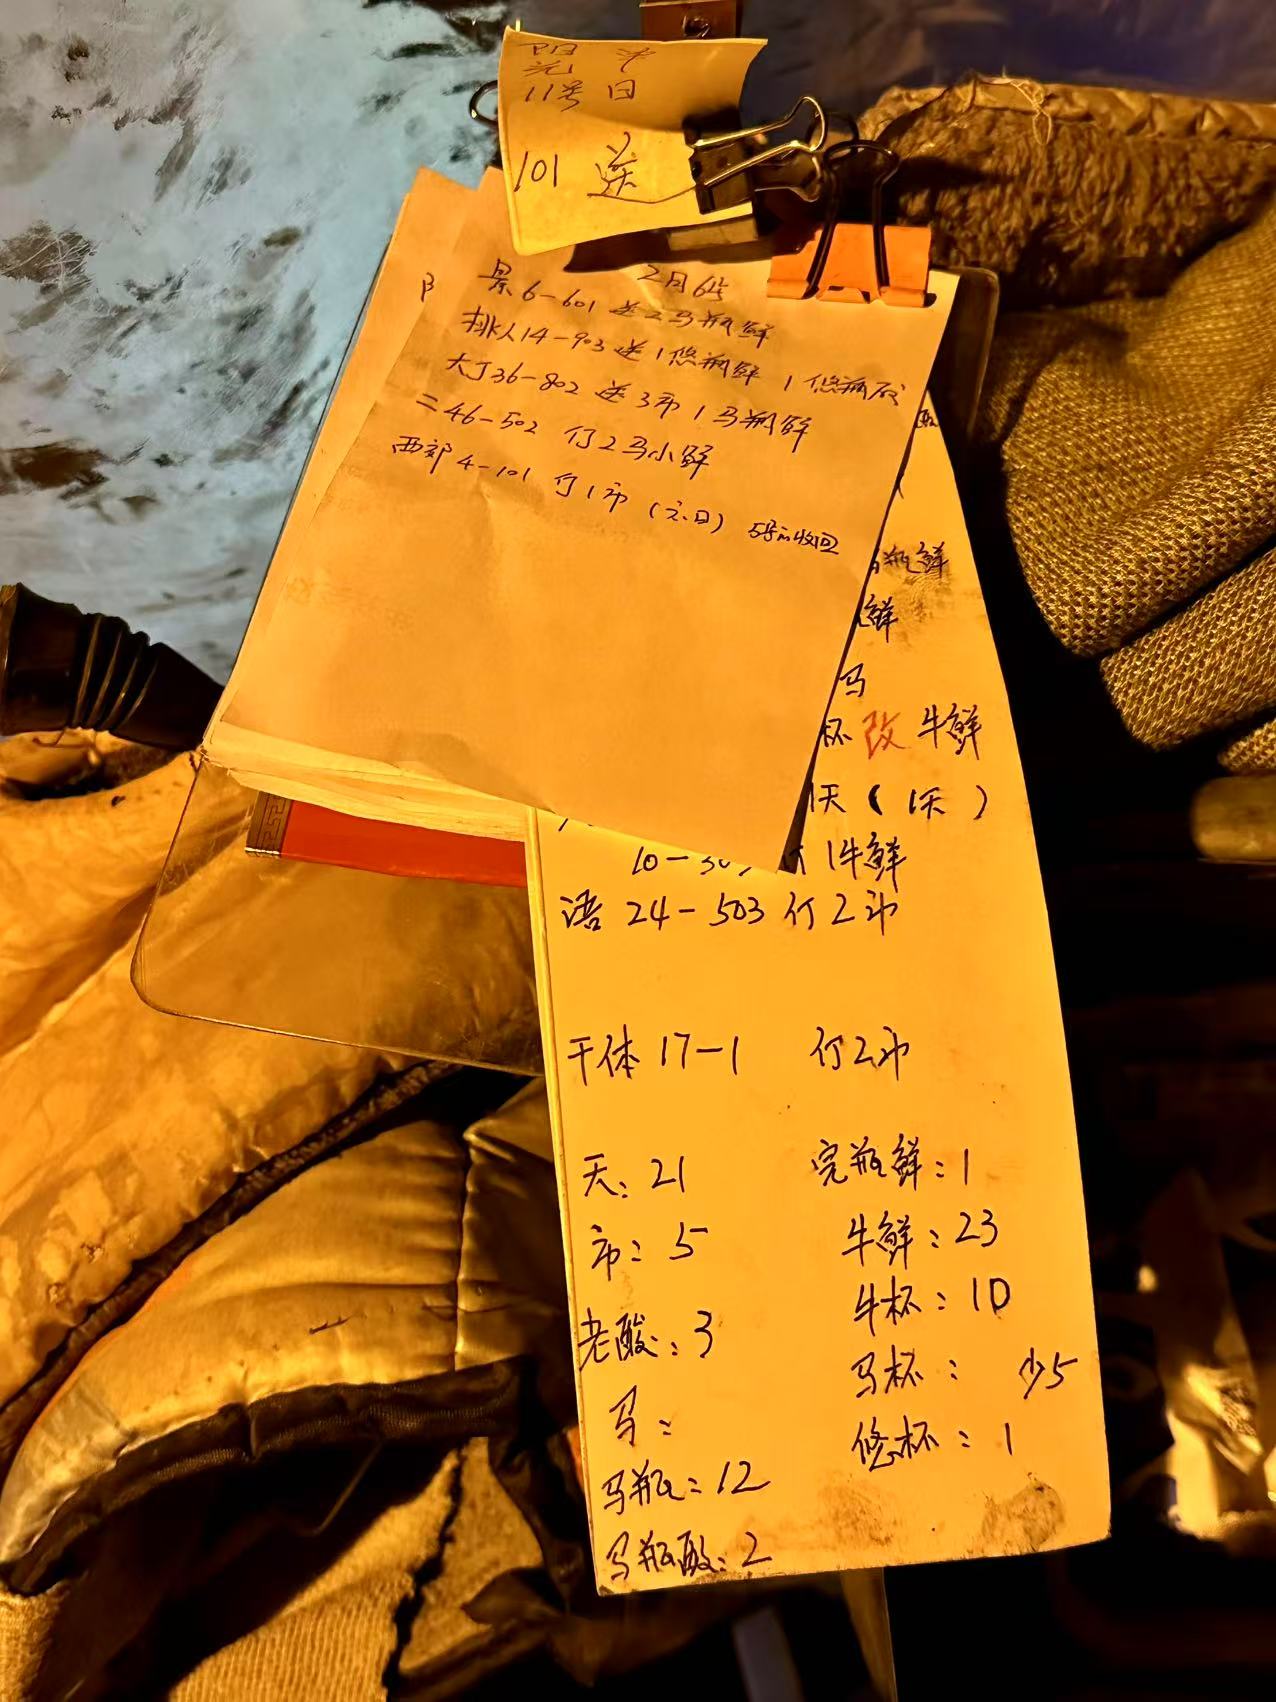 阳 半
光
11号 日
101 送
2月6号
景6-601 送2马瓶鲜
排人14-903 送1悠瓶鲜 1悠瓶酸
大丁36-802 送3币1马瓶鲜
二46-502 行2马小鲜
西郊4-101 行1币(六.日) 5号币收回
马瓶鲜
鲜
马
杯 改 牛鲜
1天(1天)
10-303 1牛鲜
语 24-503 行2币
干体 17-1 行2币
天: 21
完瓶鲜: 1
币: 5
牛鲜: 23
牛杯: 10
老酸: 3
马杯: 少5
马:
悠杯: 1
马瓶: 12
马瓶酸: 2